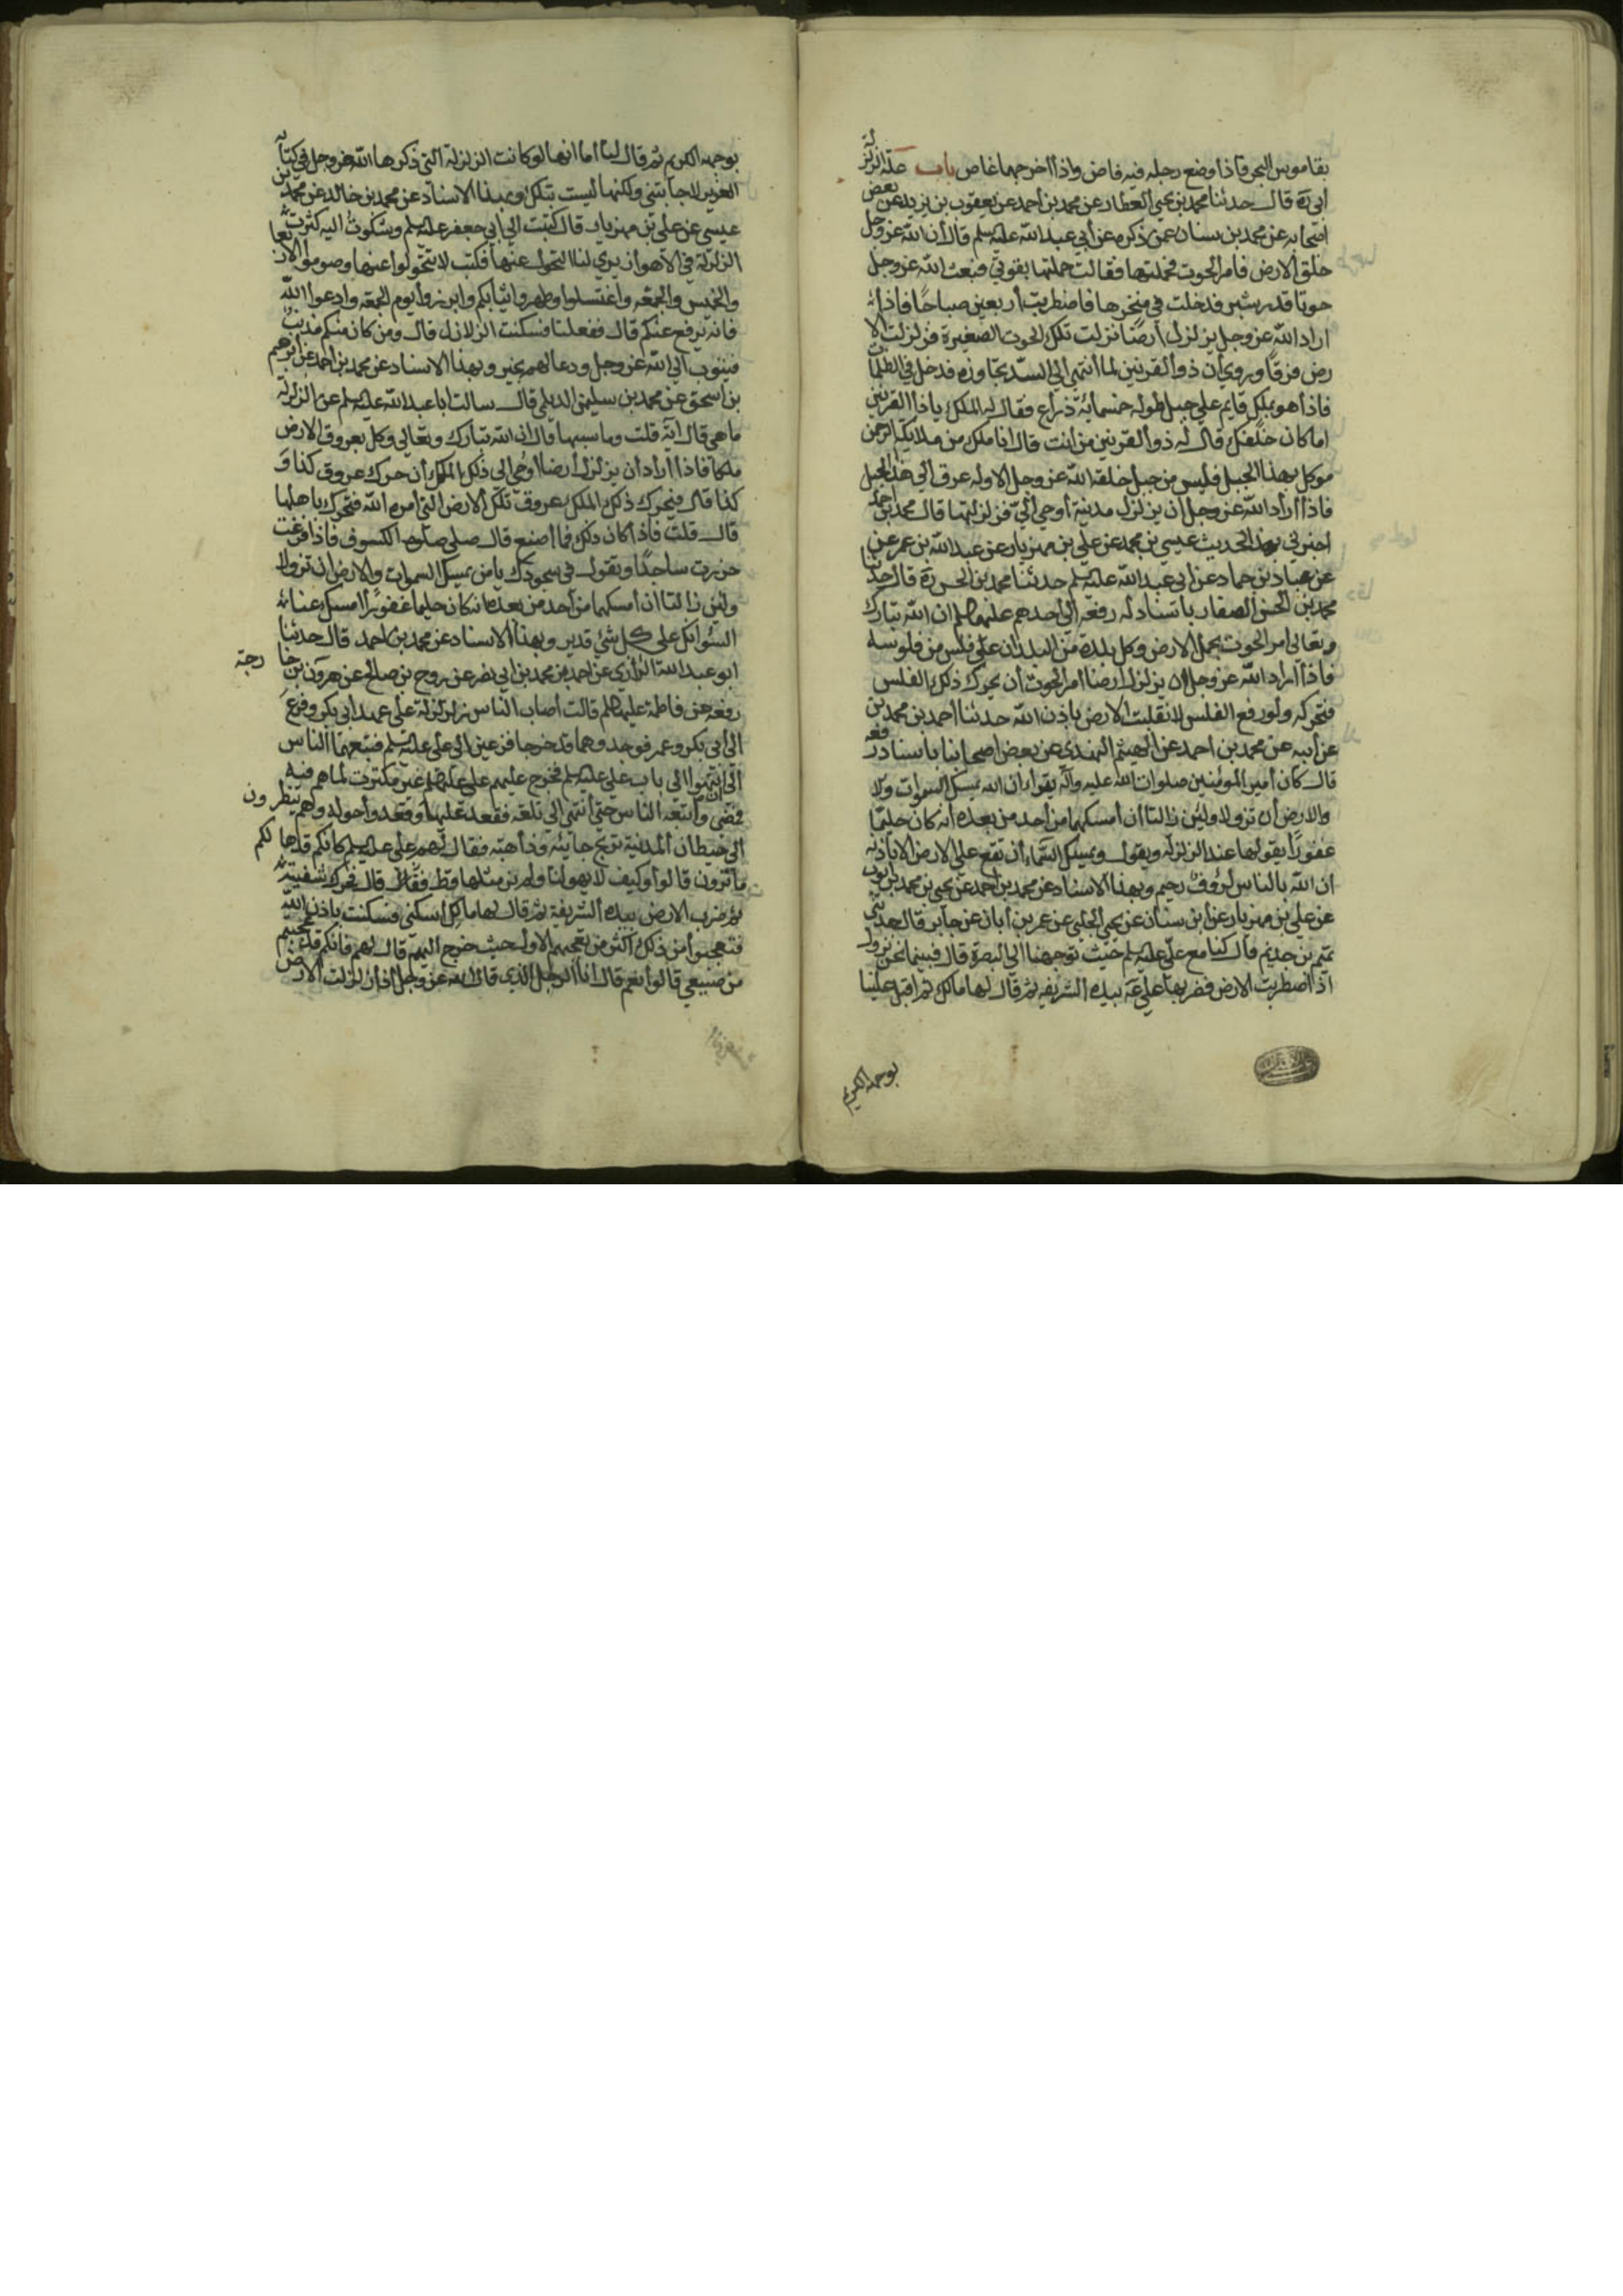 بقاموس البحر فاذا وضع رجله فيه فاض واذا اخرجهما غاض باب علة الزلزلة
ابي ره قال حدثنا محمد بن يحيي العطار عن محمد بن احمد عن يعقوب بن يزيد عن بعض
اصحابه عن محمد بن سنان عمن ذكره عن ابي عبد الله عليه سلم قال ان الله عز وجل
خلق الارض فامر الحوت فحملتها فقالت حملتها بقوتي فبعث الله عز وجل
حوتا قدر شبر فدخلت في منخرها فاضطربت اربعين صباحا فاذا
اراد الله عز وجل يزلزل ارضا نزلت تلك الحوت الصغيرة فزلزلت الا
رض فرقا وروي ان ذو القرنين لما انتهي الي السد تجاوزه فدخل في الظلمات
فاذا هو بملك قايم علي جبل طوله خمسمائة ذراع فقال له الملك ياذا القرنين
اما كان خلفك قال له ذو القرنين من انت قال انا ملك من ملايكة الرحمن
موكل بهذا الجبل فليس من جبل خلقه الله عز وجل الا وله عرق الي هذا الجبل
فاذا اراد الله عز وجل ان يزلزل مدينة اوحي الي فزلزلتها قال محمد بن احمد
اخبرني بهذا الحديث عيسي بن محمد عن علي بن مهزيار عن عبد الله بن عمر عن
عن عباد بن حماد عن ابي عبد الله عليه سلم حدثنا محمد بن الحسن ره قال حدثنا
محمد بن الحسن الصفار باسناد له رفعه الي احدهم عليهم السلم ان الله تبارك
وتعالي امر الحوت بحمل الارض وكل بلدة من البلدان علي فلس من فلوسه
فاذا اراد الله عز وجل ان يزلزل ارضا امر الحوت ان يحرك ذلك الفلس
فتحركه ولو رفع الفلس لانقلبت الارض باذن الله حدثنا احمد بن محمد بن
عن ابيه عن محمد بن احمد عن الهيثم النهدي عن بعض اصحابنا باسناد رفعه
قال كان امير المومنين صلوات الله عليه وآله يقرا ان الله يمسك السموات
والارض ان تزولا ولئن زالتا ان امسكهما من احد من بعده انه كان حليما
غفورا يقولها عند الزلزله ويقول ويمسك السماء ان تقع علي الارض الا باذنه
ان الله بالناس لرؤوف رحيم وبهذا الاسناد عن محمد بن احمد عن يحيي بن محمد بن ايوب
عن علي بن مهزيار عن ابن سنان عن يحيي الحلبي عن عمر بن ابان عن جابر قال حدثني
تميم بن حذيم قال كنا مع علي عليه سلم حيث توجهنا الي البصرة قال فبينما نحن نزول
اذا اضطربت الارض فضربها علي عه بيده الشريفه ثم قال لها مالك ثم اقبل علينا
بوجهه الكريم
بوجهه الكريم ثم قال لنا اما انها لو كانت الزلزلة التي ذكرها الله عز وجل في كتابه
العزيز لاجابتني ولكنها ليست بتلك وبهذا الاسناد عن محمد بن خالد عن محمد بن
عيسي عن علي بن مهزيار قال كتبت الي ابي جعفر عليه سلم وشكوت اليه كثرة
الزلزلة في الاهواز تري لنا التحول عنها فكتب لا تتحولوا عنها وصوموا الاربعا
والخميس والجمعه واغتسلوا وطهروا ثيابكم وابرزوا يوم الجمعه وادعوا الله
فانه يرفع عنكم قال ففعلنا فسكنت الزلازل قال ومن كان منكم مذنب
فيتوب الي الله عز وجل ودعا لهم بخير وبهذا الاسناد عن محمد بن احمد عن ابرهيم
بن اسحق عن محمد بن سليمن الديلمي قال سالت ابا عبد الله عليه سلم عن الزلزلة
ما هي قال آية قلت وما سببها قال ان الله تبارك وتعالي وكل بعروق الارض
ملكا فاذا اراد ان يزلزل ارضا اوحي الي ذلك الملك ان حرك عروق كذا و
كذا قال فيحرك ذلك الملك عروق تلك الارض التي امره الله فتحرك باهلها
قال قلت فاذا كان ذلك فما اصنع قال صلي صلوة الكسوف فاذا فرغت
خررت ساجدا وتقول في سجودك يا من يمسك السموات والارض ان تزولا
ولئن زالتا ان امسكهما من احد من بعده انه كان حليما غفورا امسك عنا
السؤ انك علي كل شئ قدير وبهذا الاسناد عن محمد بن احمد قال حدثنا
ابو عبد الله الرازي عن احمد بن محمد بن ابي نصر عن روح بن صالح عن هرون بن خا رجة
رفعه عن فاطمة عليها السلم قالت اصاب الناس زلزلة علي عهد ابي بكر وفزع
الي ابي بكر وعمر فوجدوهما قد خرجا فزعين الي علي عليه سلم فتبعهما الناس
الي ان انتهوا الي باب علي عليه سلم فخرج عليهم علي عليه السلم غير مكترث لما هم فيه
فمضي واتبعه الناس حتي انتهي الي تلعة فقعد عليها وقعدوا حوله وهم ينظرون
الي حيطان المدينة ترتج جائية وذاهبة فقال لهم علي عليه سلم كانكم قد هالكم
ما ترون قالوا وكيف لا يهولنا ولم نر مثلها قط فقال قال فحرك شفتيه
ثم ضرب الارض بيده الشريفة ثم قال لها مالك اسكني فسكنت باذن الله
فتعجبوا من ذلك اكثر من تعجبهم الاول حيث خرج اليهم قال لهم فانكم قد عجبتم
من صنيعي قالوا نعم قال انا الرجل الذي قال الله عز وجل اذا زلزلت الارض